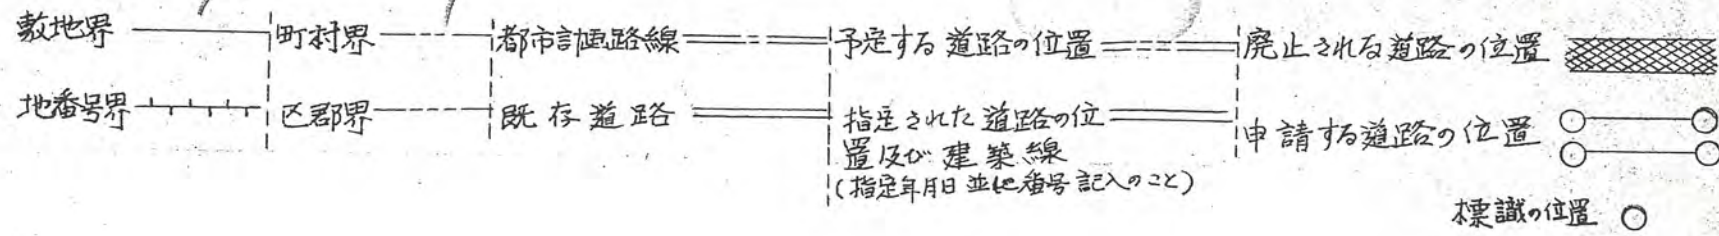 敷地界
地番号界
町村界
区郡界
都市計画路線
既存道路
予定する道路の位置
指定された道路の位
置及び建築線
(指定年月日並に番号記入のこと)
廃止される道路の位置
申請する道路の位置
標識の位置